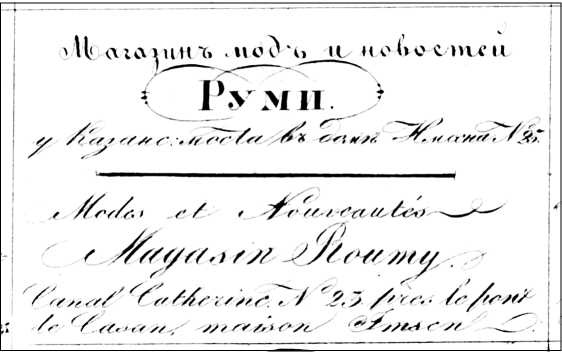 Магазинъ модъ и новостей
Руми.
у Казанс: моста въ домѣ Имсена N 25.
Modes et Nouveautés
Magasin Roumy.
Canal Catherine, N 25. pres le pont
de Casan, maison Imsen